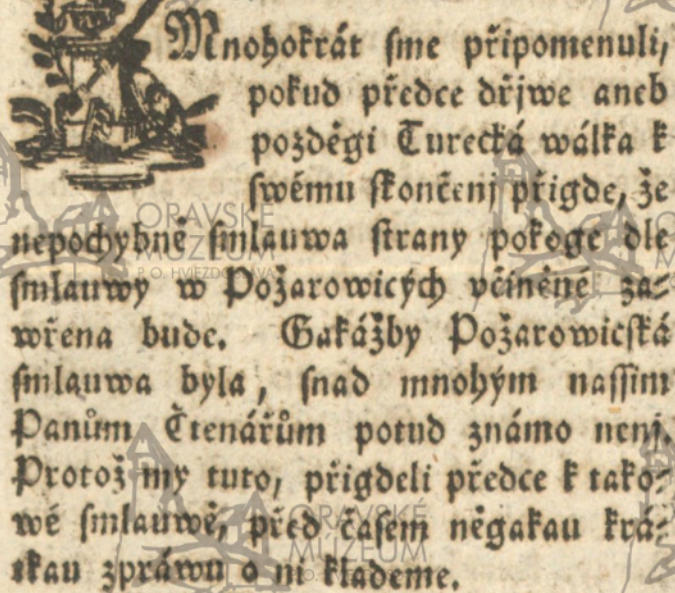 Mnohokrát sme připomenuli,
pokud předce dřjwe aneb
pozděgi Turecká wálka k
swému skončenj přigde, že
nepochybně smlauwa strany pokoge dle
smlauwy w Požarowicých včiněné za-
wřena bude. Gakážby Požarowicská
smlauwa byla, snad mnohým nassim
Panům Čtenářům potud známo nenj.
Protož my tuto, přigdeli předce k tako-
wé smlauwě, před časem něgakau krá-
tkau zpráwu o ni klademe.
ORAVSKÉ
MÚZEUM
P. O. HVIEZDOSLAVA
ORAVSKÉ
MÚZEUM